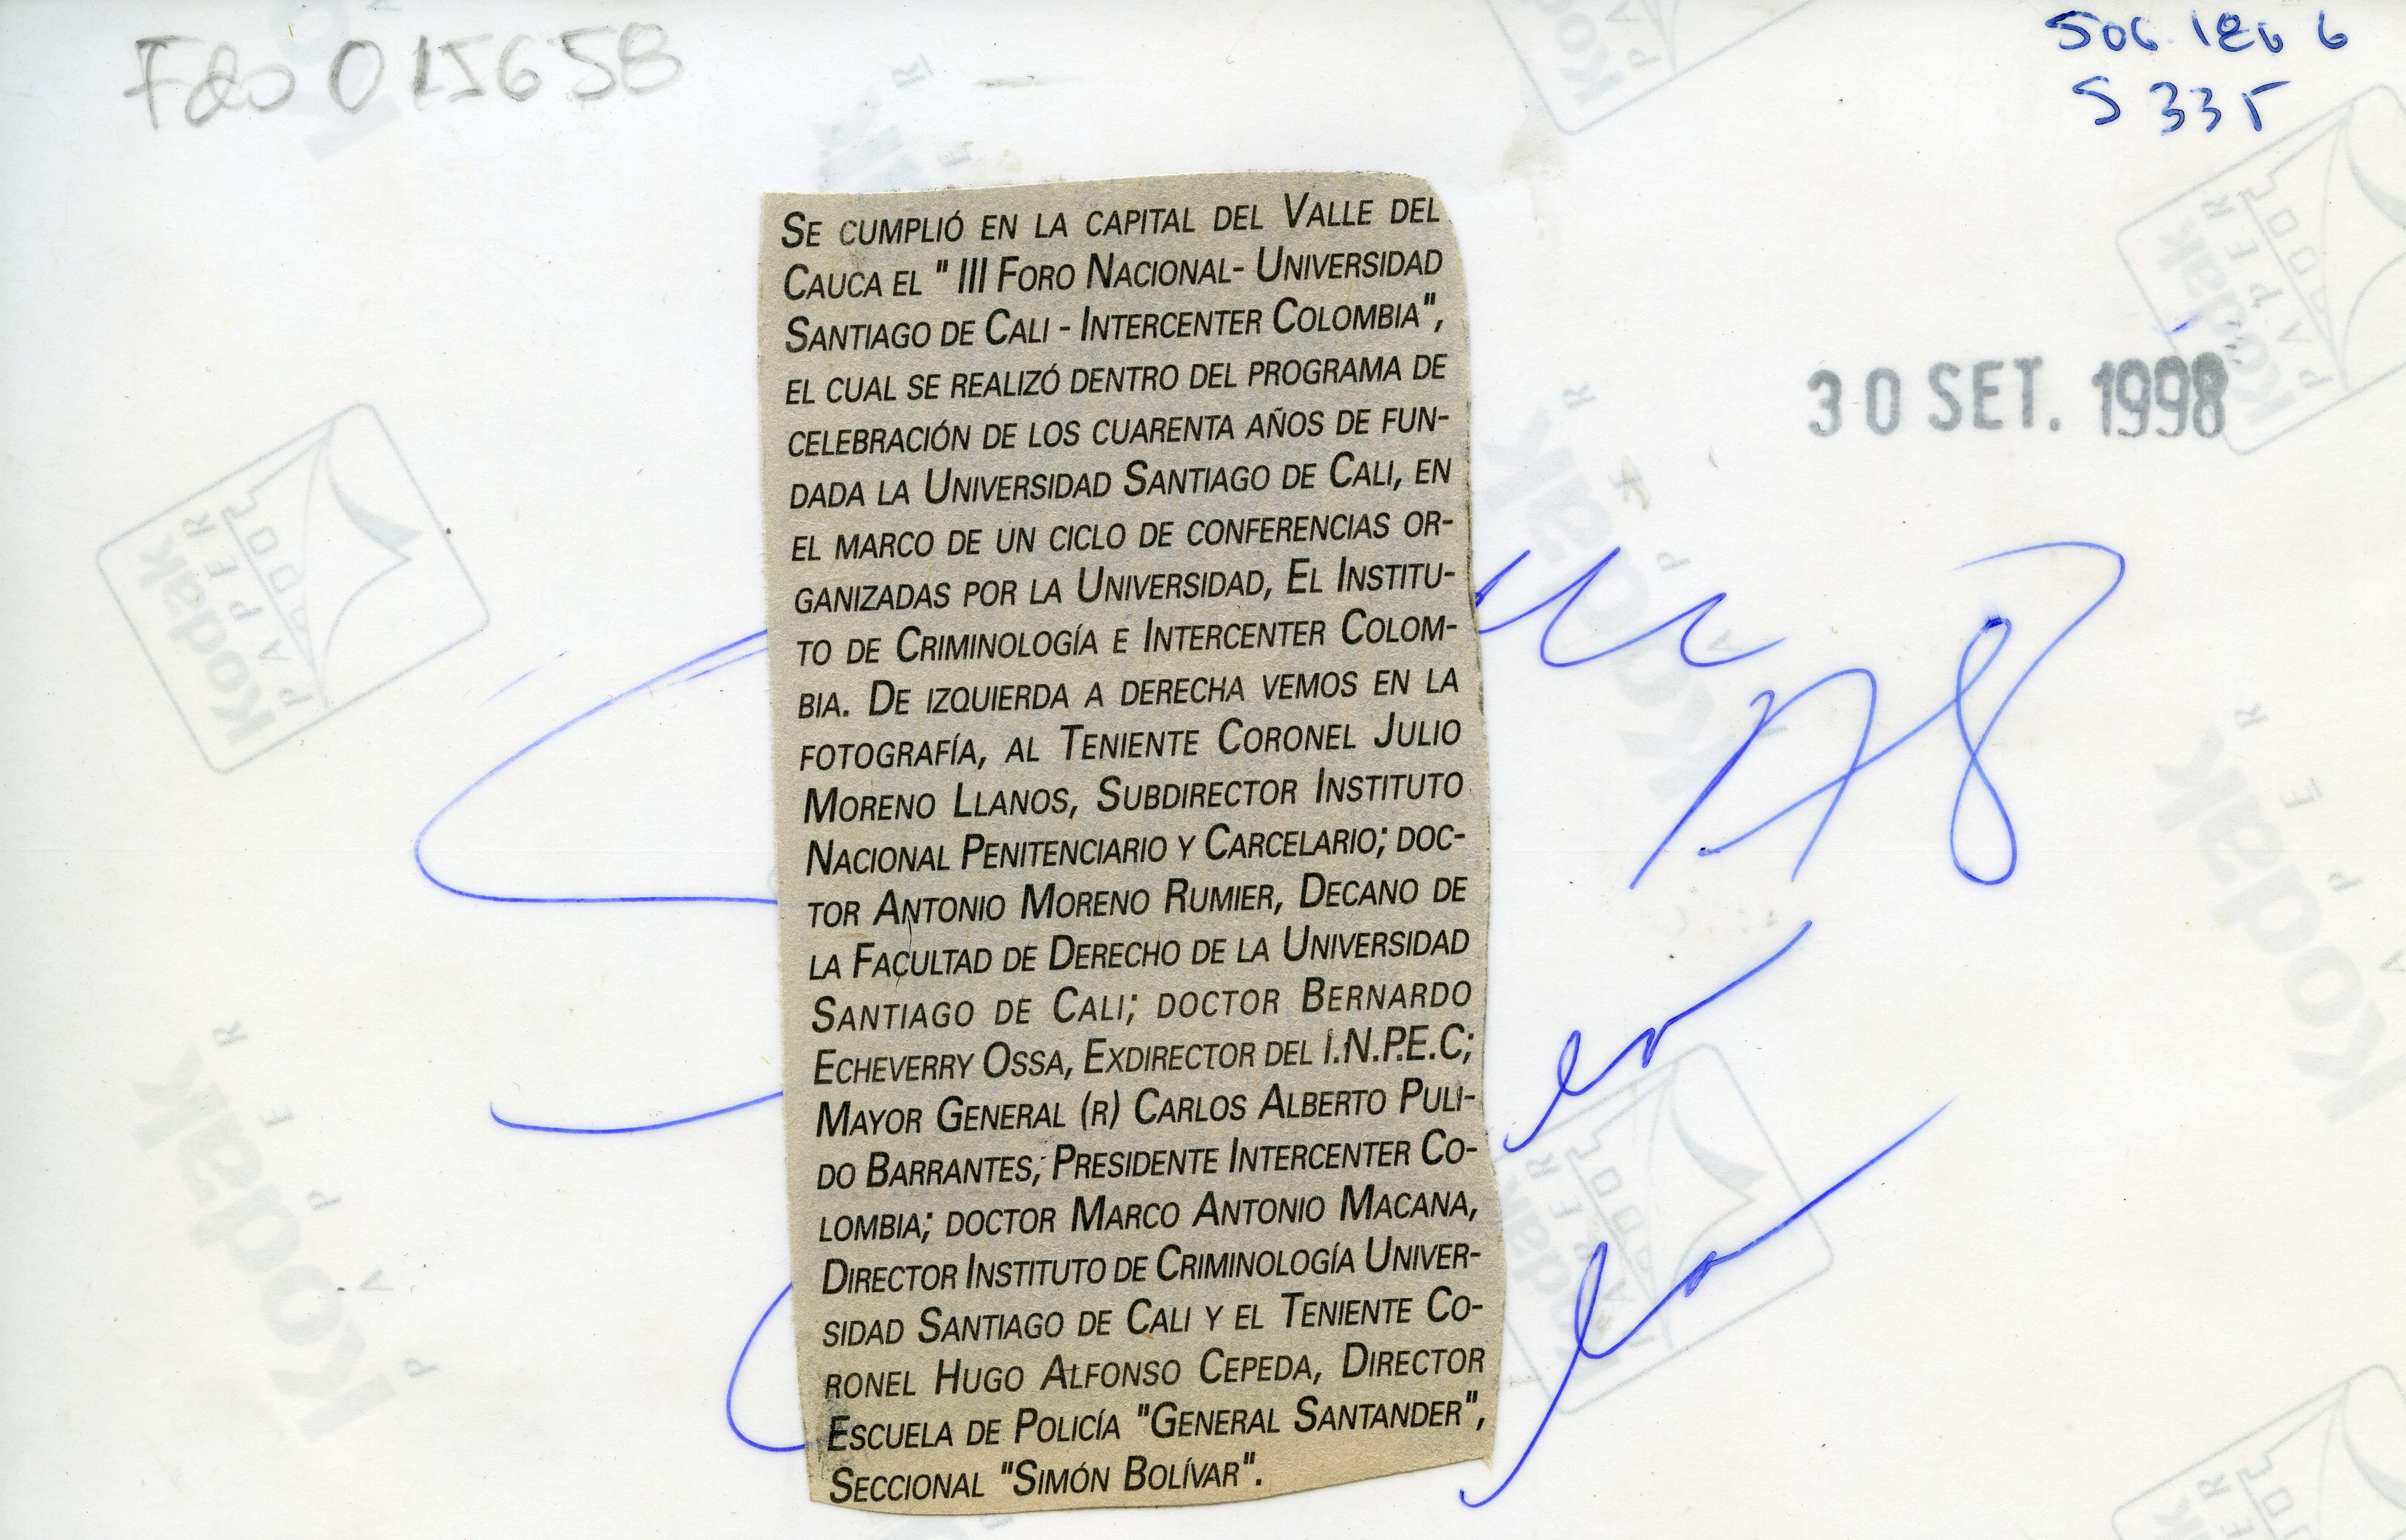 015658
S 335
30 SET. 1998
SE CUMPLIÓ EN LA CAPITAL DEL VALLE DEL
CAUCA EL " III FORO NACIONAL- UNIVERSIDAD
SANTIAGO DE CALI - INTERCENTER COLOMBIA",
EL CUAL SE REALIZÓ DENTRO DEL PROGRAMA DE
CELEBRACIÓN DE LOS CUARENTA AÑOS DE FUN-
DADA LA UNIVERSIDAD SANTIAGO DE CALI, EN
EL MARCO DE UN CICLO DE CONFERENCIAS OR-
GANIZADAS POR LA UNIVERSIDAD, EL INSTITU-
TO DE CRIMINOLOGÍA E INTERCENTER COLOM-
BIA. DE IZQUIERDA A DERECHA VEMOS EN LA
FOTOGRAFÍA, AL TENIENTE CORONEL JULIO
MORENO LLANOS, SUBDIRECTOR INSTITUTO
NACIONAL PENITENCIARIO Y CARCELARIO; DOC-
TOR ANTONIO MORENO RUMIER, DECANO DE
LA FACULTAD DE DERECHO DE LA UNIVERSIDAD
SANTIAGO DE CALI; DOCTOR BERNARDO
ECHEVERRY OSSA, EXDIRECTOR DEL I.N.P.E.C;
MAYOR GENERAL (R) CARLOS ALBERTO PULI-
DO BARRANTES, PRESIDENTE INTERCENTER CO-
LOMBIA; DOCTOR MARCO ANTONIO MACANA,
DIRECTOR INSTITUTO DE CRIMINOLOGÍA UNIVER-
SIDAD SANTIAGO DE CALI Y EL TENIENTE CO-
RONEL HUGO ALFONSO CEPEDA, DIRECTOR
ESCUELA DE POLICÍA "GENERAL SANTANDER",
SECCIONAL "SIMÓN BOLÍVAR".
Kodak
PAPER
Kodak
PAPER
Kodak
PAPER
Kodak
PAPER